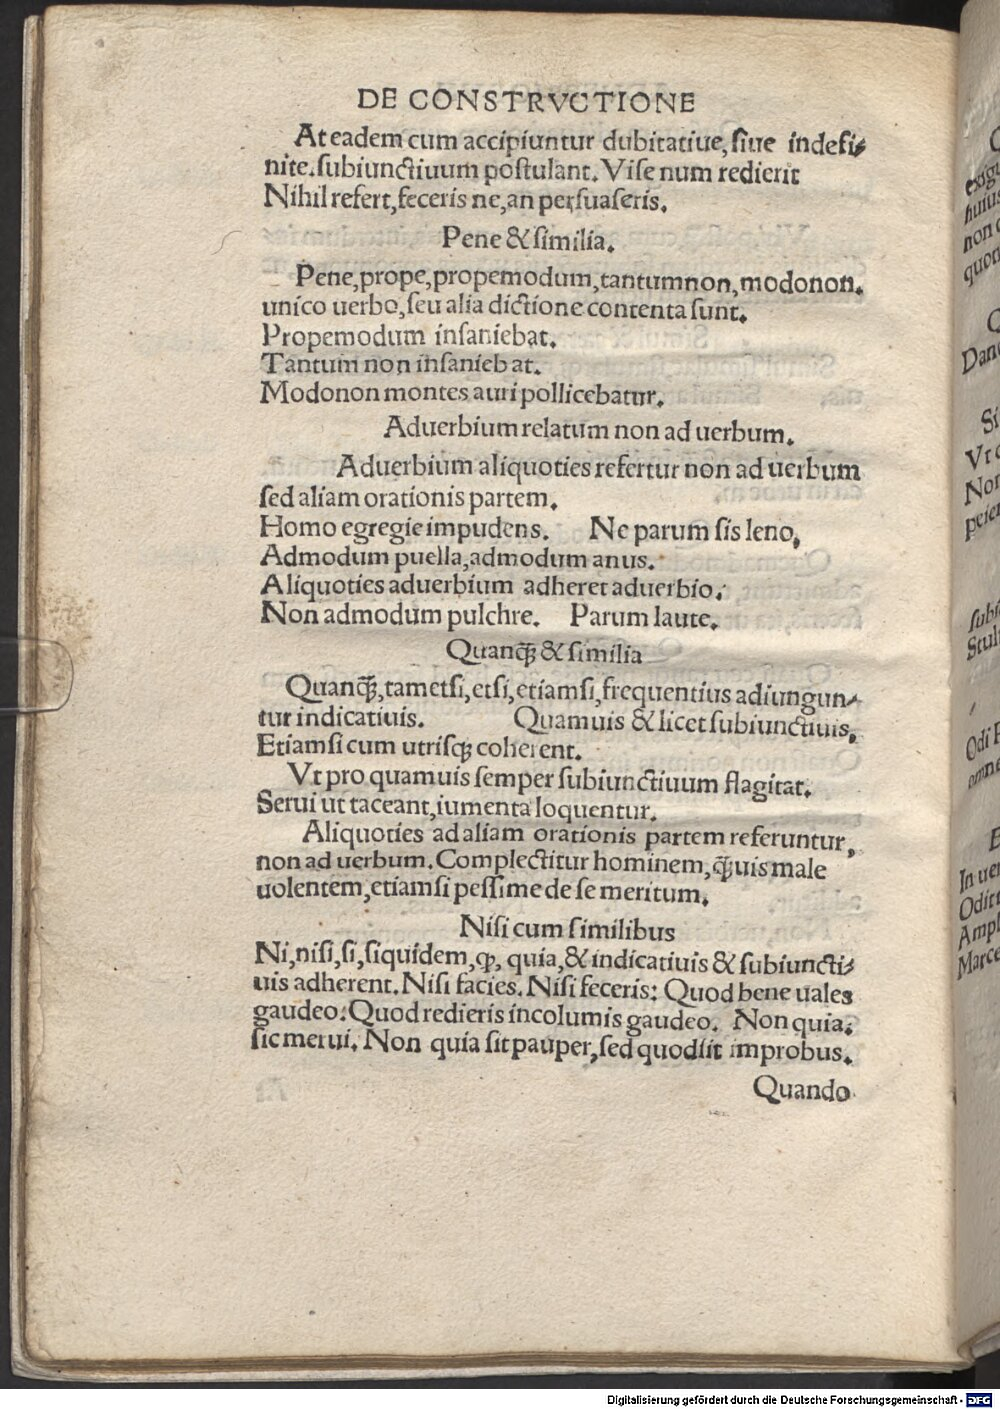 DE CONSTRVCTIONE
At eadem cum accipiuntur dubitatiue, ſiue indefi⸗
nite.ſubiunctiuum poſtulant. Viſe num redierit
Nihil refert, feceris ne, an perſuaſeris.
Pene & ſimilia.
Pene, prope, propemodum, tantumnon, modonon.
unico uerbo, ſeu alia dictione contenta ſunt.
Propemodum inſaniebat.
Tantum non inſaniebat.
Modonon montes auri pollicebatur.
Aduerbium relatum non ad uerbum.
Aduerbium aliquoties refertur non ad uerbum
ſed aliam orationis partem.
Homo egregie impudens. Ne parum ſis leno,
Admodum puella, admodum anus.
Aliquoties aduerbium adheret aduerbio.
Non admodum pulchre. Parum laute.
Quanꝗ̃ & ſimilia
Quanꝗ̃, tametſi, etſi, etiamſi, frequentius adiungun⸗
tur indicatiuis. Quamuis & licet ſubiunctiuis,
Etiamſi cum utriſꝗ coherent.
Vt pro quamuis ſemper ſubiunctiuum flagitat.
Serui ut taceant, iumenta loquentur.
Aliquoties ad aliam orationis partem referuntur,
non ad uerbum. Complectitur hominem, ꝗ̃uis male
uolentem, etiamſi peſſime de ſe meritum.
Niſi cum ſimilibus
Ni, niſi, ſi, ſiquidem, ꝙ, quia, & indicatiuis & ſubiuncti⸗
uis adherent. Niſi facies. Niſi feceris: Quod bene uales
gaudeo. Quod redieris incolumis gaudeo. Non quia.
ſic merui. Non quia ſit pauper, ſed quod ſit improbus.
Quando
exigu
huius
non
Dan
Si
Vt
Non
peier
ſubi
Stul
Odi
omne
In uer
Odit
Ampl
Marce
Digitalisierung gefördert durch die Deutsche Forschungsgemeinschaft - DFG